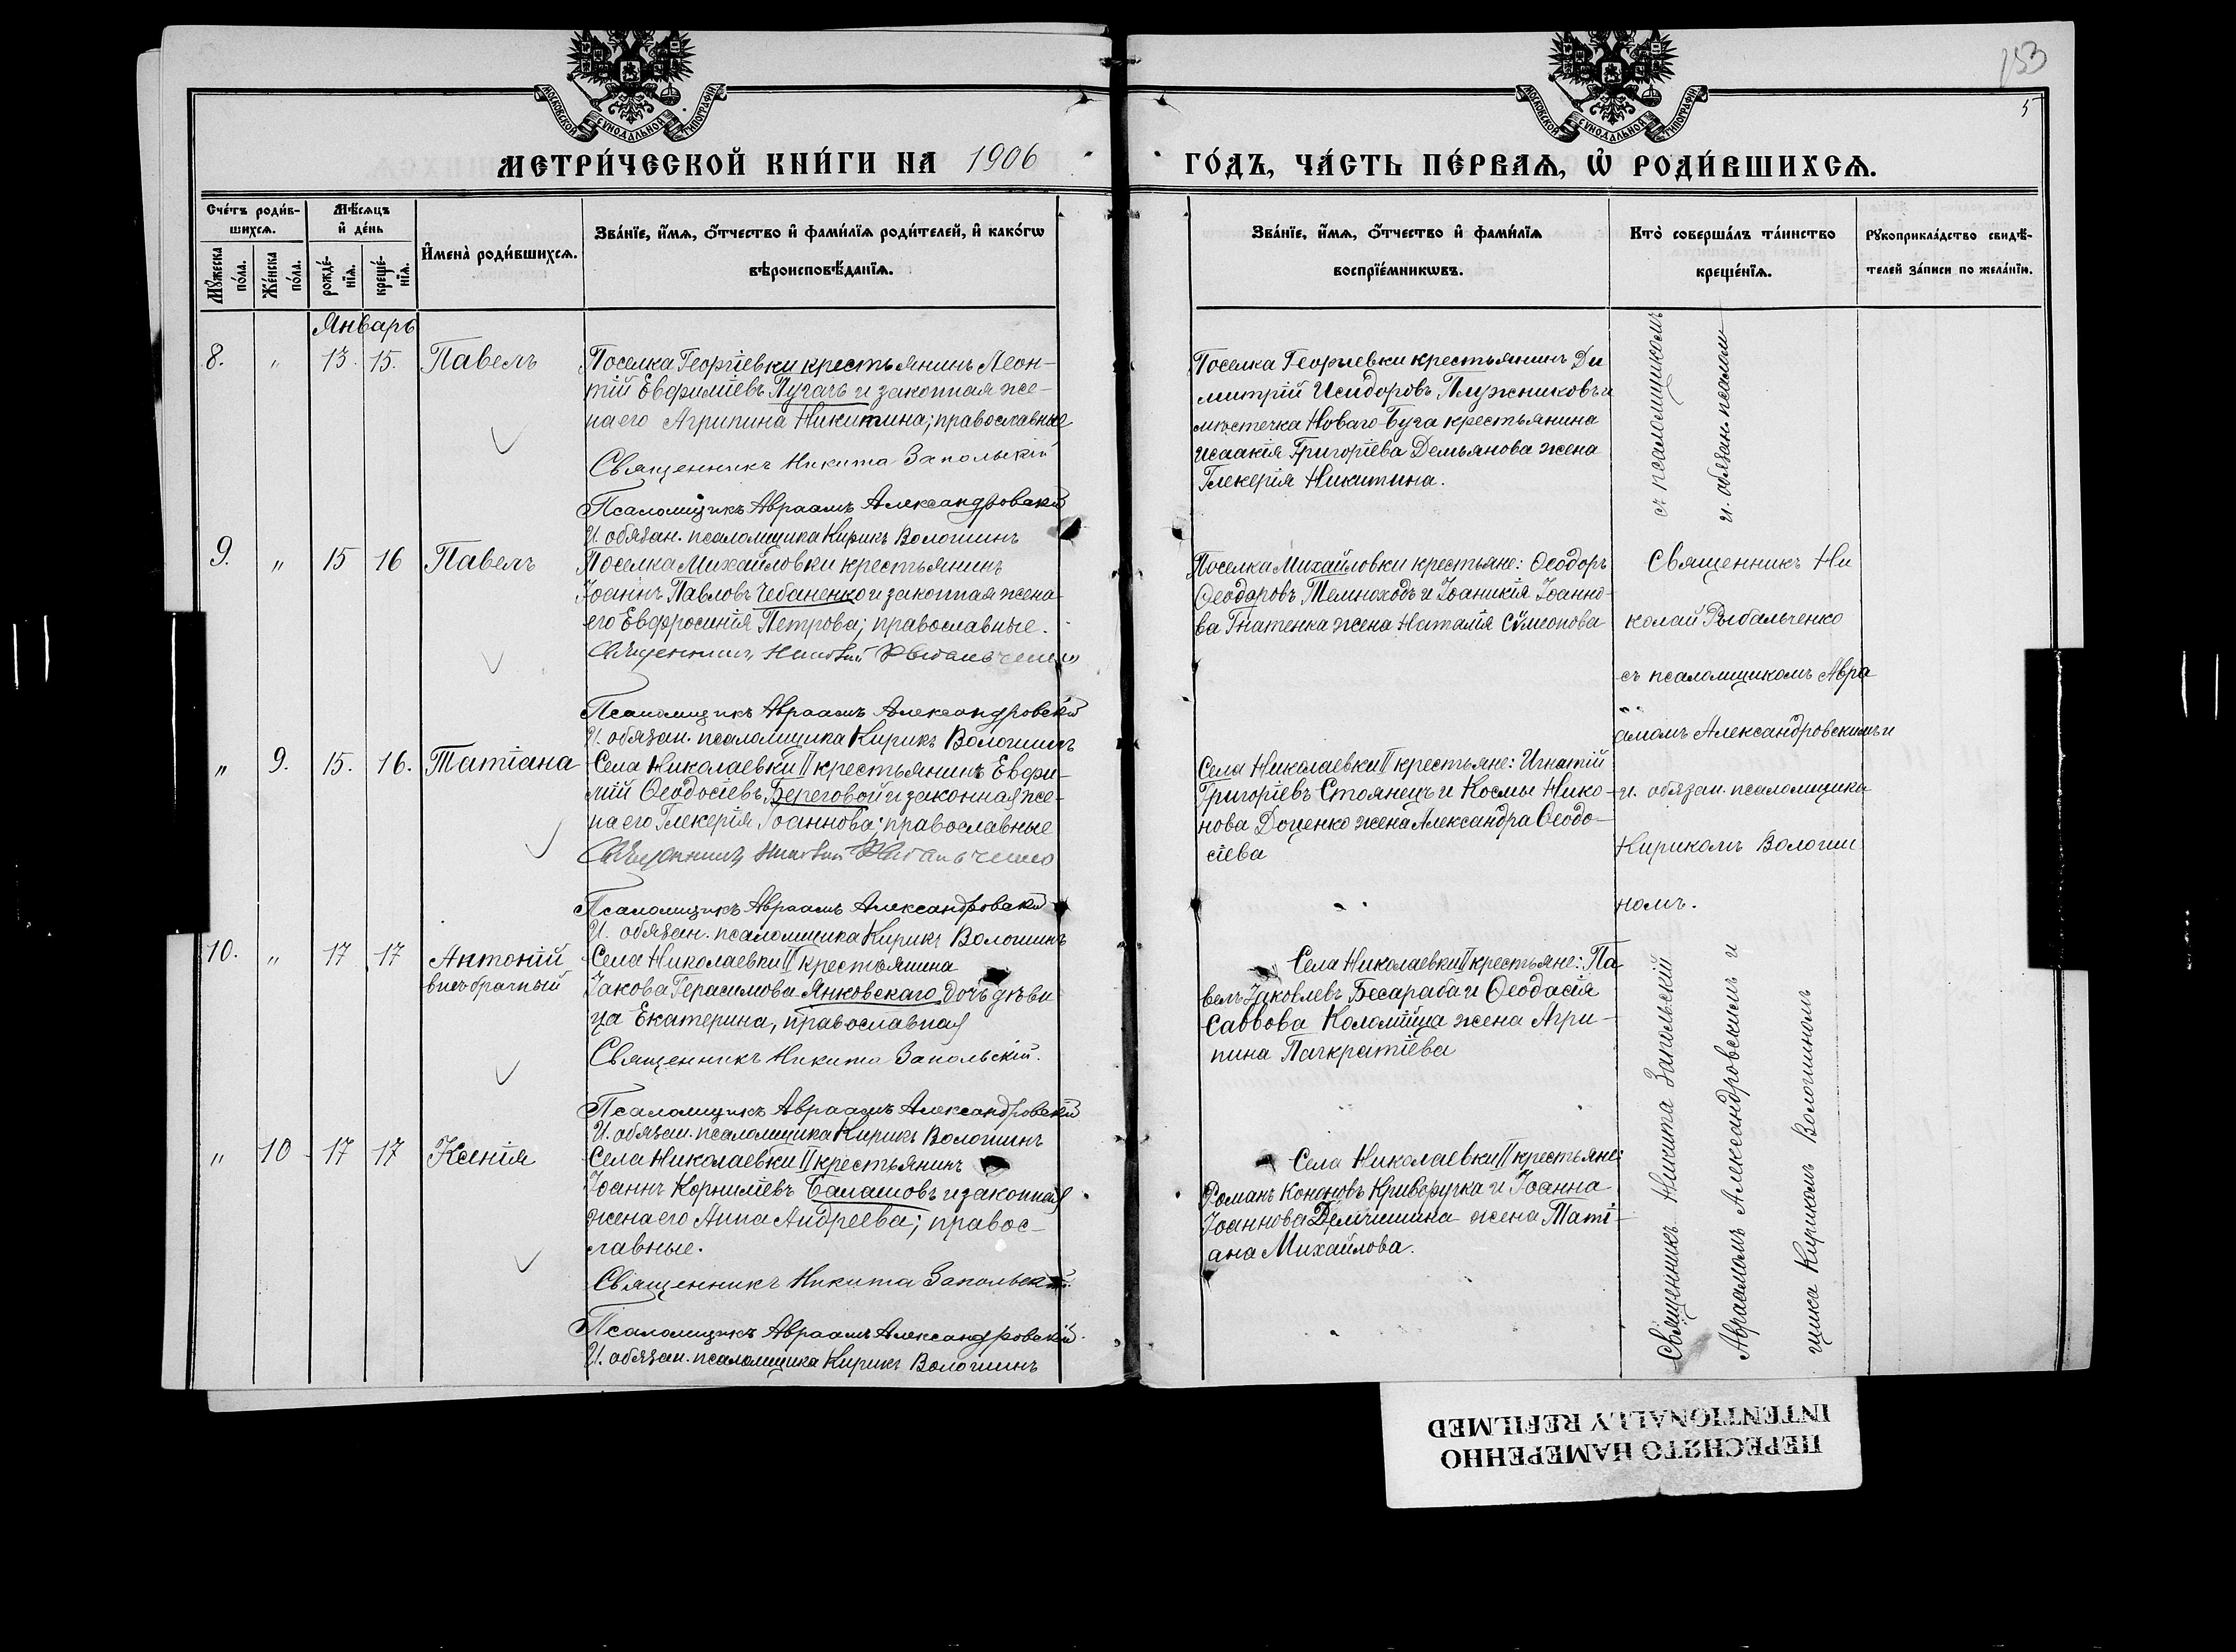 153
5
МОСКОВСКОЙ СѴНОДАЛЬНОЙ ТИПОГРАФІИ
МОСКОВСКОЙ СѴНОДАЛЬНОЙ ТИПОГРАФІИ
МЕТРИ́ЧЕСКОЙ КНИ́ГИ НА 1906
ГО́ДЪ, ЧА́СТЬ ПЕ́РВАѦ, Ѡ҆ РОДИ́ВШИХСѦ.
Сче́тъ роди́в-
шихсѧ.
Мꙋ́жеска по́ла.
Же́нска по́ла.
Мѣ́сѧцъ
и҆ де́нь
рожде́-
нїѧ.
креще́-
нїѧ.
И҆мена̀ роди́вшихсѧ.
Зва́нїе, и҆́мѧ, ѻ҆́тчество и҆ фами́лїѧ роди́телей, и҆ како́гѡ
вѣроисповѣ́данїѧ.
Зва́нїе, и҆́мѧ, ѻ҆́тчество и҆ фами́лїѧ
воспрїе́мникѡвъ.
Кто̀ соверша́лъ та́инство
креще́нїѧ.
Рꙋкоприкла́дство свидѣ́-
телей за́писи по жела́нїю.
Январь
8. " 13. 15. Павелъ
Поселка Георгіевки крестьянинъ Леон-
тій Евфиміевъ Пугачъ и законная же-
на его Агрипина Никитина; православные
Священникъ Никита Запольскій
Псаломщикъ Авраамъ Александровскій
И. обязан. псаломщика Кирикъ Волошинъ
Поселка Георгіевки крестьянинъ Ди
митрій Исидоровъ Плужниковъ и
мѣстечка Новаго-Буга крестьянина
Исаакія Григоріева Демьянова жена
Гликерія Никитина.
съ псаломщикомъ
и. обязан. псалом
9. " 15 16 Павелъ
Поселка Михайловки крестьянинъ
Іоаннъ Павловъ Чебаненко и законная жена
его Евфросинія Петрова; православные.
Священникъ Николай Рыбальченко
Псаломщикъ Авраамъ Александровскій
И. обязан. псаломщика Кирикъ Волошинъ
Поселка Михайловки крестьяне: Ѳеодоръ
Ѳеодоровъ Темноходъ и Іоаникія Іоанно-
ва Гнатенка жена Наталія Сѵмеонова
Священникъ Ни
колай Рыбальченко
съ псаломщикомъ Авра
амомъ Александровскимъ и
и. обязан. псаломщика
Кирикомъ Волоши
номъ.
" 9. 15. 16. Татіана
Села Николаевки II крестьянинъ Евфи-
мій Ѳеодосіевъ Береговой и законная же-
на его Гликерія Іоаннова; православные
Священникъ Николай Рыбальченко
Псаломщикъ Авраамъ Александровскій
И. обязан. псаломщика Кирикъ Волошинъ
Села Николаевки II крестьяне: Игнатій
Григоріевъ Стоянецъ и Космы Нико-
нова Доценко жена Александра Ѳеодо-
сіева
10. " 17 17 Антоній
внѣбрачный
Села Николаевки II крестьянина
Іакова Герасимова Янковскаго дочь дѣви
ца Екатерина, православная
Священникъ Никита Запольскій.
Псаломщикъ Авраамъ Александровскій
И. обязан. псаломщика Кирикъ Волошинъ
Села Николаевки II крестьяне: Па
велъ Іаковлевъ Бесараба и Ѳеодосія
Саввова Коломійца жена Агри-
пина Панкратіева
Священникъ Никита Запольскій
Авраамомъ Александровскимъ и
щика Кирикомъ Волошиномъ
" 10 17 17 Ксенія
Села Николаевки II крестьянинъ
Іоаннъ Корниліевъ Балашовъ и законная
жена его Анна Андреева; правос-
лавные.
Священникъ Никита Запольскій.
Псаломщикъ Авраамъ Александровскій.
И. обязан. псаломщика Кирикъ Волошинъ
Села Николаевки II крестьяне:
Романъ Кононовъ Криворучка и Іоанна
Іоаннова жена Таті-
ана Михайлова.
ПЕРЕСНЯТО НАМЕРЕННО
INTENTIONALLY REFILMED